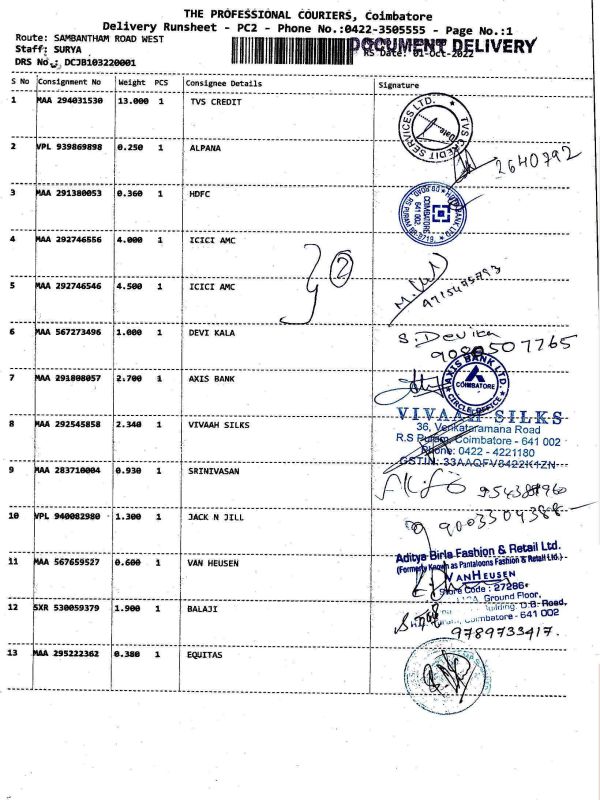 THE PROFESSIONAL COURIERS, Coimbatore
Delivery Runsheet - PC2 - Phone No.:0422-3505555 - Page No.:1
Route: SAMBANTHAM ROAD WEST
DOCUMENT DELIVERY
Staff: SURYA
RS Date: 01-Oct-2022
DRS No : DCJB103220001
S No Consignment No Weight PCS Consignee Details Signature
1 MAA 294031530 13.000 1 TVS CREDIT
TVS CREDIT SERVICES LTD.
Date
2 VPL 939869898 0.250 1 ALPANA
2640792
3 MAA 291380053 0.360 1 HDFC
COIMBATORE
641 002
4 MAA 292746556 4.000 1 ICICI AMC
2
5 MAA 292746546 4.500 1 ICICI AMC
9715475793
6 MAA 567273496 1.000 1 DEVI KALA
S. Devika
9080507765
7 MAA 291808057 2.700 1 AXIS BANK
AXIS BANK LTD.
COIMBATORE
CIRCLE OFFICE
8 MAA 292545858 2.340 1 VIVAAH SILKS
VIVAAH SILKS
36, Venkataramana Road
R.S Puram, Coimbatore - 641 002
Phone: 0422 - 4221180
GSTIN: 33AAQFV8422K1ZN
9 MAA 283710004 0.930 1 SRINIVASAN
10 VPL 940082980 1.300 1 JACK N JILL
9003304388
11 MAA 567659527 0.600 1 VAN HEUSEN
Aditya Birla Fashion & Retail Ltd.
(Formerly Known as Pantaloons Fashion & Retail Ltd.)
VAN HEUSEN
Store Code : 27286
Ground Floor,
Building, D.B. Road,
Coimbatore - 641 002
12 SXR 530059379 1.900 1 BALAJI
9789733417.
13 MAA 295222362 0.380 1 EQUITAS